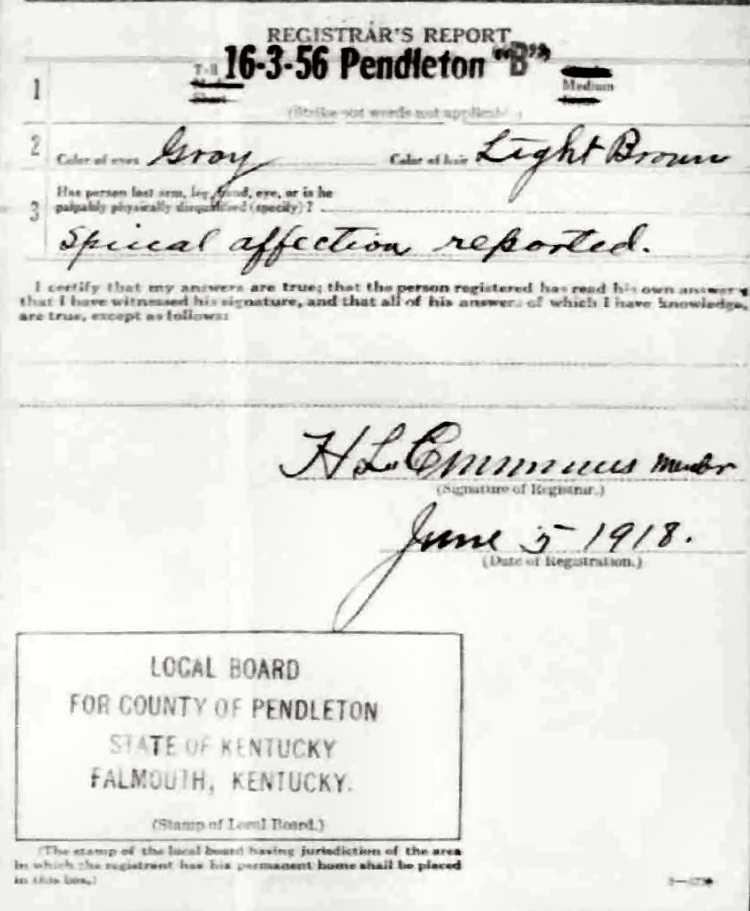 REGISTRAR'S REPORT
16-3-56 Pendleton "B"
1 Medium
(Strike out words not applicable)
2 Color of eyes Gray Color of hair Light Brown
Has person lost arm, leg, hand, eye, or is he
3 palpably physically disqualified (specify)?
Spinal affection reported.
I certify that my answers are true; that the person registered has read his own answers
that I have witnessed his signature, and that all of his answers of which I have knowledge,
are true, except as follows:
H L Member
(Signature of Registrar.)
June 5 1918.
(Date of Registration.)
LOCAL BOARD
FOR COUNTY OF PENDLETON
STATE OF KENTUCKY
FALMOUTH, KENTUCKY.
(Stamp of Local Board.)
(The stamp of the local board having jurisdiction of the area
in which the registrant has his permanent home shall be placed
in this box.)